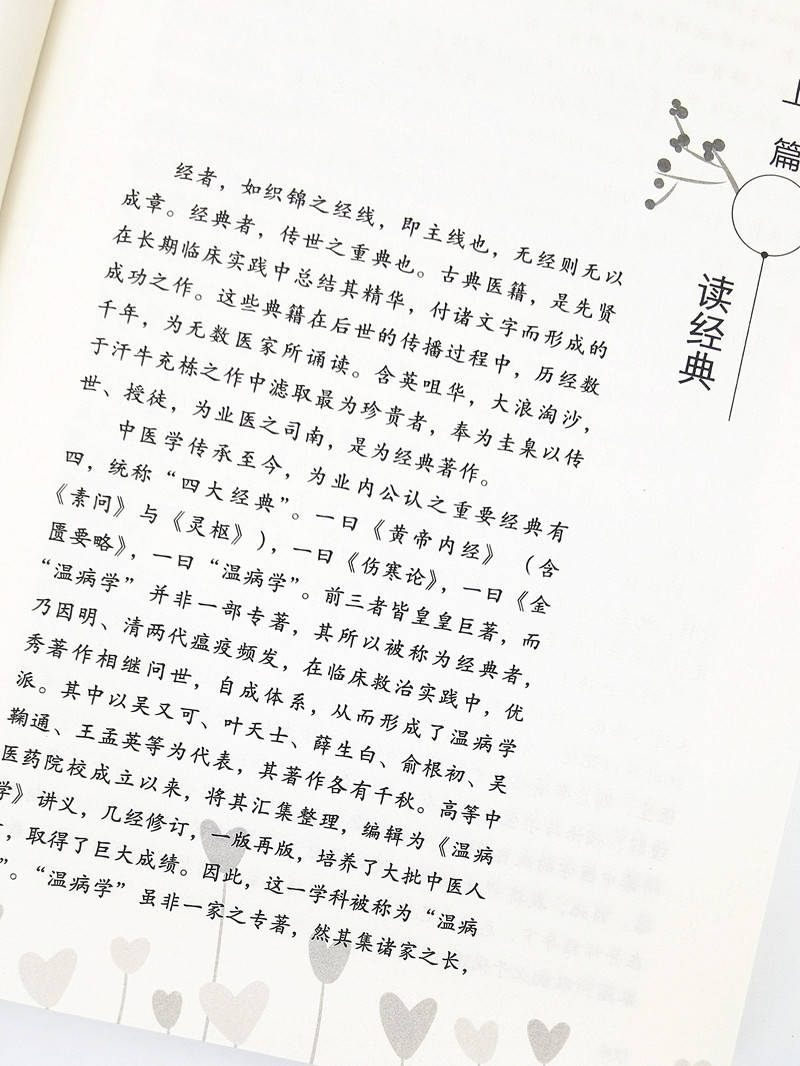 上篇
读经典
经者，如织锦之经线，即主线也，无经则无以
成章。经典者，传世之重典也。古典医籍，是先贤
在长期临床实践中总结其精华，付诸文字而形成的
成功之作。这些典籍在后世的传播过程中，历经数
千年，为无数医家所诵读。含英咀华，大浪淘沙，
于汗牛充栋之作中滤取最为珍贵者，奉为圭臬以传
世、授徒，为业医之司南，是为经典著作。
中医学传承至今，为业内公认之重要经典有
四，统称“四大经典”。一曰《黄帝内经》（含
《素问》与《灵枢》），一曰《伤寒论》，一曰《金
匮要略》，一曰“温病学”。前三者皆皇皇巨著，而
“温病学”并非一部专著，其所以被称为经典者，
乃因明、清两代瘟疫频发，在临床救治实践中，优
秀著作相继问世，自成体系，从而形成了温病学
派。其中以吴又可、叶天士、薛生白、俞根初、吴
鞠通、王孟英等为代表，其著作各有千秋。高等中
医药院校成立以来，将其汇集整理，编辑为《温病
学》讲义，几经修订，一版再版，培养了大批中医人
，取得了巨大成绩。因此，这一学科被称为“温病
”。“温病学”虽非一家之专著，然其集诸家之长，